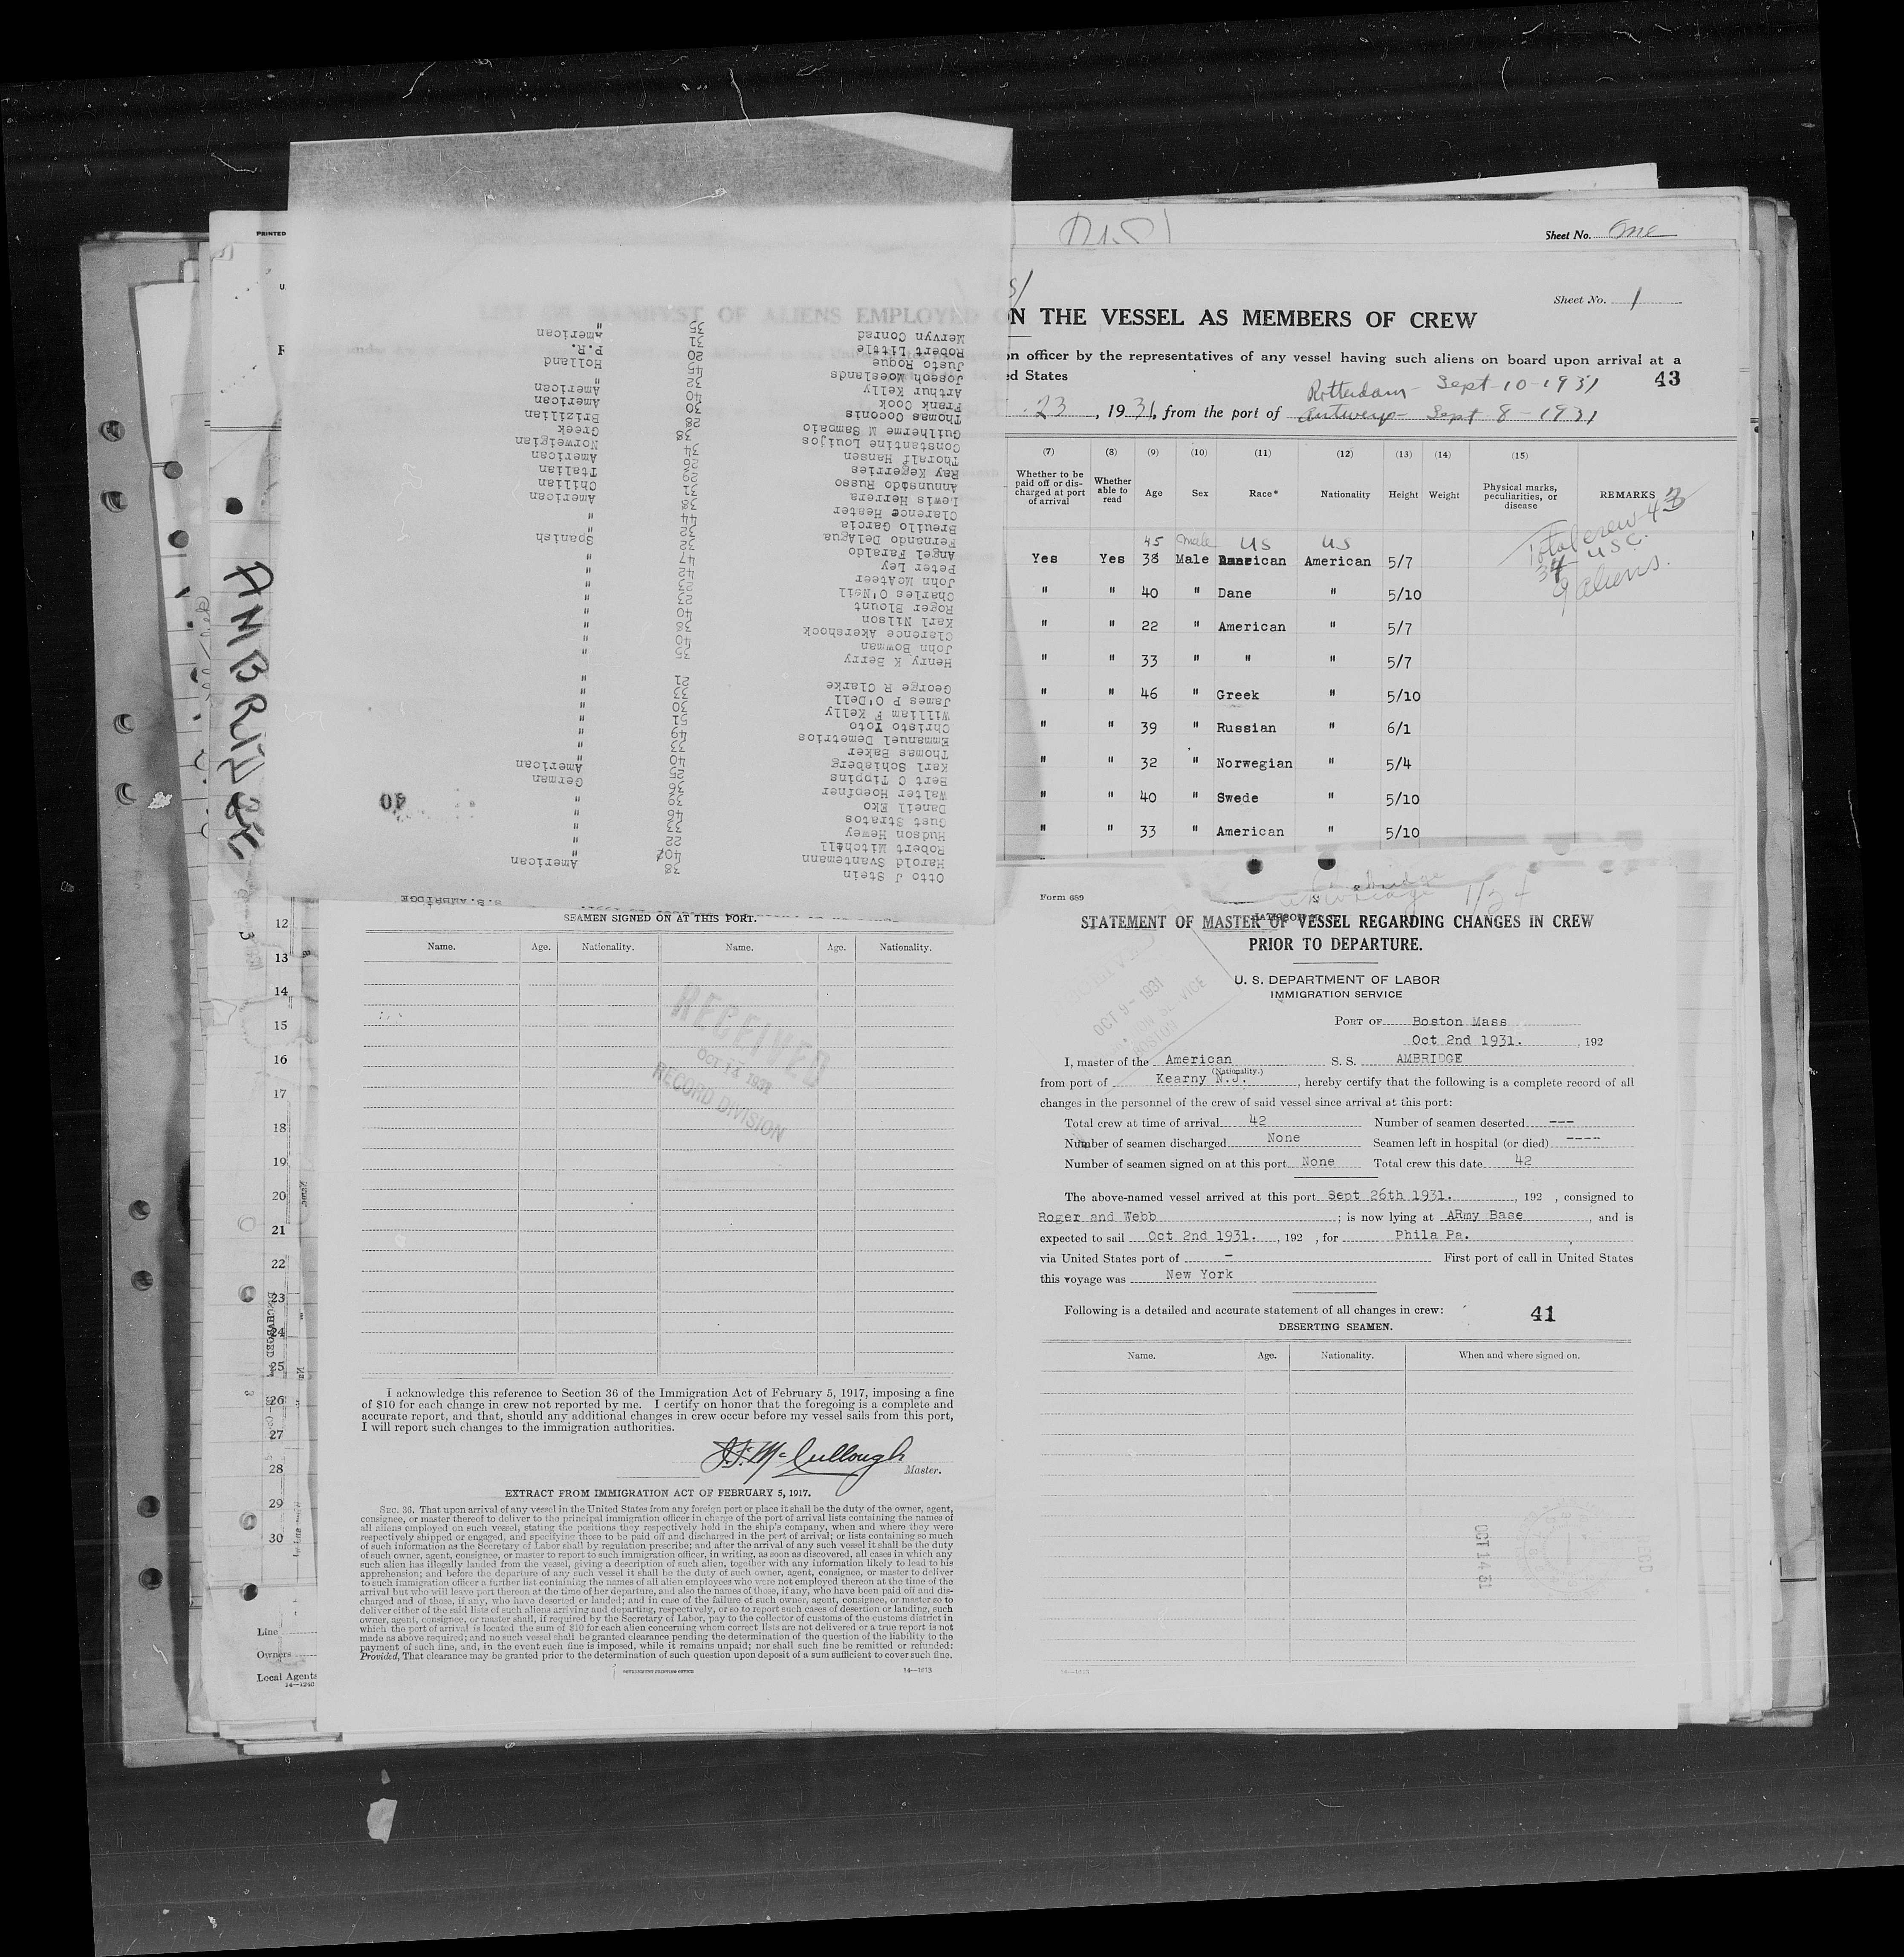 PRINTED
Sheet No. One
Sheet No. 1
ON THE VESSEL AS MEMBERS OF CREW
on officer by the representatives of any vessel having such aliens on board upon arrival at a
ed States
43
Rotterdam - Sept-10-1931
23, 1931, from the port of Antwerp - Sept 8 - 1931
(7) (8) (9) (10) (11) (12) (13) (14) (15)
Whether to be paid off or discharged at port of arrival Whether able to read Age Sex Race* Nationality Height Weight Physical marks, peculiarities, or disease REMARKS
Total crew - 43
34 USC.
9 aliens.
45 male US US
Yes Yes 38 Male American American 5/7
" " 40 " Dane " 5/10
" " 22 " American " 5/7
" " 33 " " " 5/7
" " 46 " Greek " 5/10
" " 39 " Russian " 6/1
" " 32 " Norwegian " 5/4
" " 40 " Swede " 5/10
" " 33 " American " 5/10
AMBRIDGE
S.S. AMBRIDGE
Otto J Stein 38 American
Harold Svantemann 40 "
Robert Mitchell 22 "
Hudson Hewey 33 "
Gust Stratos 46 "
Daneil Eko 39 "
Walter Hoepfner 36 German
Bert C Tippins 25 American
Karl Schiaberg 40 "
Thomas Baker 33 "
Emmanuel Demetrios 49 "
Christo Toto 51 "
William F Kelly 30 "
James P O'Dell 33 "
George R Clarke 21 "
Henry K Berry 35 "
John Bowman 40 "
Clarence Akershock 38 "
Karl Nilson 40 "
Roger Blount 23 "
Charles O'Neil 23 "
John McAteer 42 "
Peter Ley 47 "
Angel Faraldo 32 Spanish
Fernando DelAgua 32 "
Breuilo Garcia 44 "
Clarence Heater 38 American
Lewis Herrera 31 Chilian
Annunsdo Russo 29 Italian
Ray Kegerries 26 American
Thoralf Hansen 34 Norweigian
Constantine Louijos 38 Greek
Guilherme M Sampaio 28 Brizilian
Thomas Coconis 30 American
Frank Cook 40 American
Arthur Kelly 32 "
Joseph Moeslands 45 Holland
Justo Roque 20 P.R.
Robert Little 31 American
Mervyn Conrad 35 "
40
12
13
14
15
16
17
18
19
20
21
22
23
24
25
26
27
28
29
30
Line
Owners
Local Agents
14—1240
SEAMEN SIGNED ON AT THIS PORT.
Name. Age. Nationality. Name. Age. Nationality.
RECEIVED
OCT 14 1931
RECORD DIVISION
I acknowledge this reference to Section 36 of the Immigration Act of February 5, 1917, imposing a fine
of $10 for each change in crew not reported by me. I certify on honor that the foregoing is a complete and
accurate report, and that, should any additional changes in crew occur before my vessel sails from this port,
I will report such changes to the immigration authorities.
J.F. McCullough
Master.
EXTRACT FROM IMMIGRATION ACT OF FEBRUARY 5, 1917.
SEC. 36. That upon arrival of any vessel in the United States from any foreign port or place it shall be the duty of the owner, agent,
consignee, or master thereof to deliver to the principal immigration officer in charge of the port of arrival lists containing the names of
all aliens employed on such vessel, stating the positions they respectively hold in the ship's company, when and where they were
respectively shipped or engaged, and specifying those to be paid off and discharged in the port of arrival; or lists containing so much
of such information as the Secretary of Labor shall by regulation prescribe; and after the arrival of any such vessel it shall be the duty
of such owner, agent, consignee, or master to report to such immigration officer, in writing, as soon as discovered, all cases in which any
such alien has illegally landed from the vessel, giving a description of such alien, together with any information likely to lead to his
apprehension; and before the departure of any such vessel it shall be the duty of such owner, agent, consignee, or master to deliver
to such immigration officer a further list containing the names of all alien employees who were not employed thereon at the time of the
arrival but who will leave port thereon at the time of her departure, and also the names of those, if any, who have been paid off and dis-
charged and of those, if any, who have deserted or landed; and in case of the failure of such owner, agent, consignee, or master so to
deliver either of the said lists of such aliens arriving and departing, respectively, or so to report such cases of desertion or landing, such
owner, agent, consignee, or master shall, if required by the Secretary of Labor, pay to the collector of customs of the customs district in
which the port of arrival is located the sum of $10 for each alien concerning whom correct lists are not delivered or a true report is not
made as above required; and no such vessel shall be granted clearance pending the determination of the question of the liability to the
payment of such fine, and, in the event such fine is imposed, while it remains unpaid; nor shall such fine be remitted or refunded:
Provided, That clearance may be granted prior to the determination of such question upon deposit of a sum sufficient to cover such fine.
GOVERNMENT PRINTING OFFICE 14—1613
Form 689
STATEMENT OF MASTER OF VESSEL REGARDING CHANGES IN CREW
PRIOR TO DEPARTURE.
U. S. DEPARTMENT OF LABOR
IMMIGRATION SERVICE
OCT 9 - 1931
BOSTON
PORT OF Boston Mass
Oct 2nd 1931. , 192
I, master of the American S. S. AMBRIDGE
(Nationality.)
from port of Kearny N.J. , hereby certify that the following is a complete record of all
changes in the personnel of the crew of said vessel since arrival at this port:
Total crew at time of arrival 42 Number of seamen deserted ---
Number of seamen discharged None Seamen left in hospital (or died) ----
Number of seamen signed on at this port None Total crew this date 42
The above-named vessel arrived at this port Sept 26th 1931. , 192 , consigned to
Roger and Webb ; is now lying at ARmy Base , and is
expected to sail Oct 2nd 1931. , 192 , for Phila Pa.
via United States port of - First port of call in United States
this voyage was New York
Following is a detailed and accurate statement of all changes in crew:
41
DESERTING SEAMEN.
Name. Age. Nationality. When and where signed on.
OCT 14 31